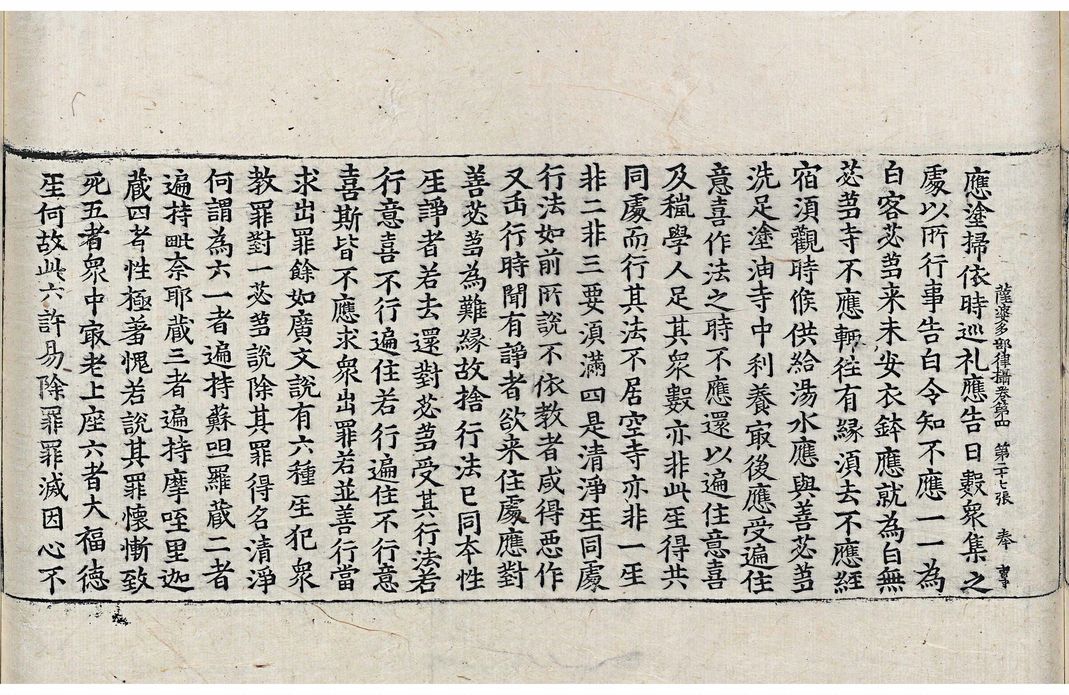 薩婆多部律攝卷第四　第二十七張　奉
應塗掃依時巡礼應告日數衆集之
處以所行事告白令知不應一一為
白客苾芻来未安衣鉢應就為白無
苾芻寺不應輙往有緣須去不應經
宿須觀時候供給湯水應與善苾芻
洗足塗油寺中利養㝡後應受遍住
意喜作法之時不應還以遍住意喜
及穊學人足其衆數亦非此㞷得共
同處而行其法不居空寺亦非一㞷
非二非三要湏滿四是清淨㞷同處
行法如前所說不依教者咸得惡作
又㞷行時聞有諍者欲来住處應對
善苾芻為難緣故捨行法已同本性
㞷諍者若去還對苾芻受其行法若
行意喜不行遍住若行遍住不行意
喜斯皆不應求衆出罪若並善行當
求出罪餘如廣文說有六種㞷犯衆
教罪對一苾芻說除其罪得名清淨
何謂為六一者遍持蘇呾羅蔵二者
遍持毗奈耶蔵三者遍持摩咥里迦
蔵四者性極著愧若說其罪懷慚致
死五者衆中㝡老上座六者大福德
㞷何故此六許易除罪罪滅因心不